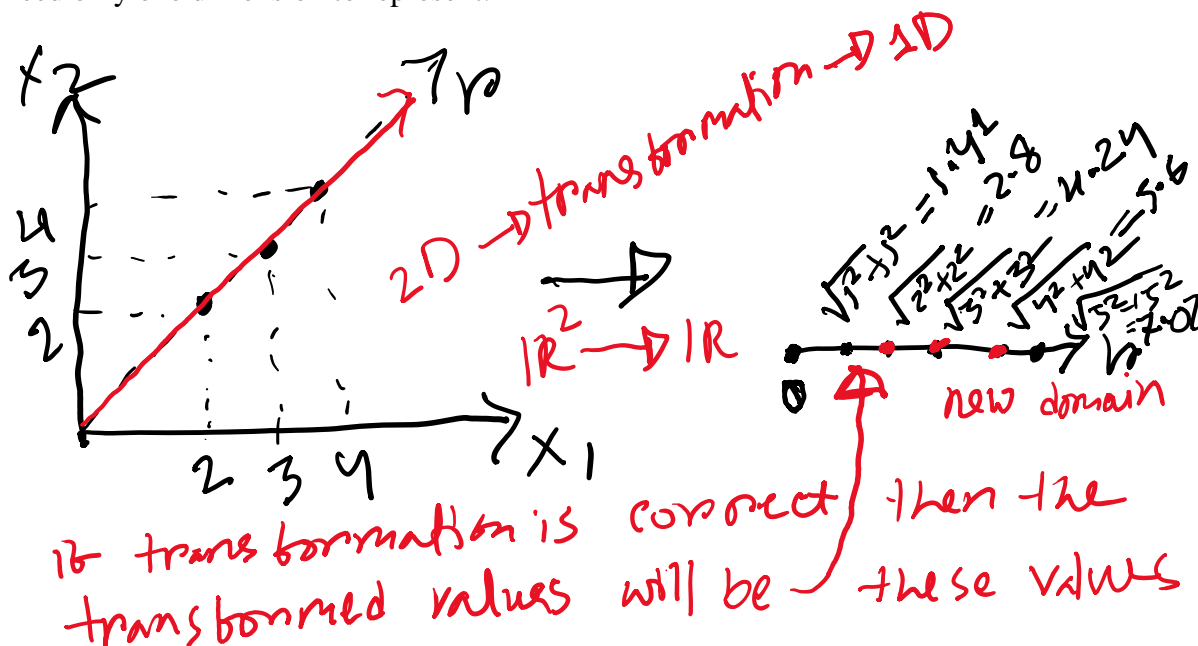 x2
r
2D → transformation → 1D
4
3
2
2 3 4
x1
|R² → |R
√1²+1² = 1.41
√2²+2² = 2.8
√3²+3² = 4.24
√4²+4² = 5.6
√5²+5² = 7.07
0
r
new domain
if transformation is correct then the
transformed values will be these values